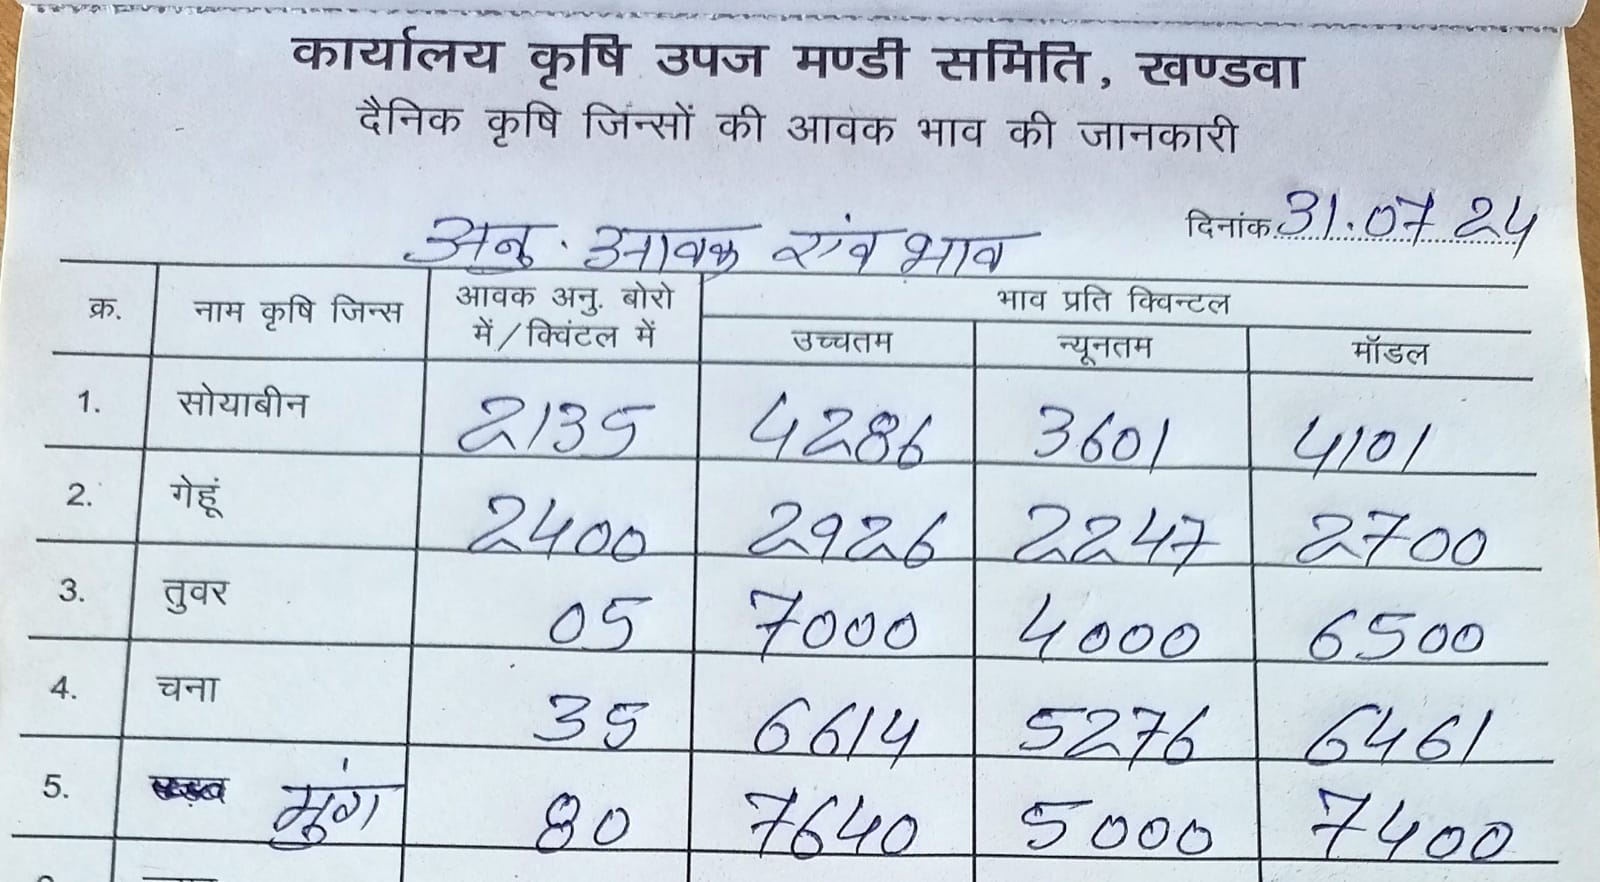 कार्यालय कृषि उपज मण्डी समिति, खण्डवा
दैनिक कृषि जिन्सों की आवक भाव की जानकारी
दिनांक 31.07 24
अनु. आवक एंव भाव
क्र. नाम कृषि जिन्स आवक अनु. बोरो में/क्विंटल में भाव प्रति क्विन्टल
उच्चतम न्यूनतम मॉडल
1. सोयाबीन 2135 4286 3601 4101
2. गेहूं 2400 2926 2247 2700
3. तुवर 05 7000 4000 6500
4. चना 35 6614 5276 6461
5. मुंग 80 7640 5000 7400